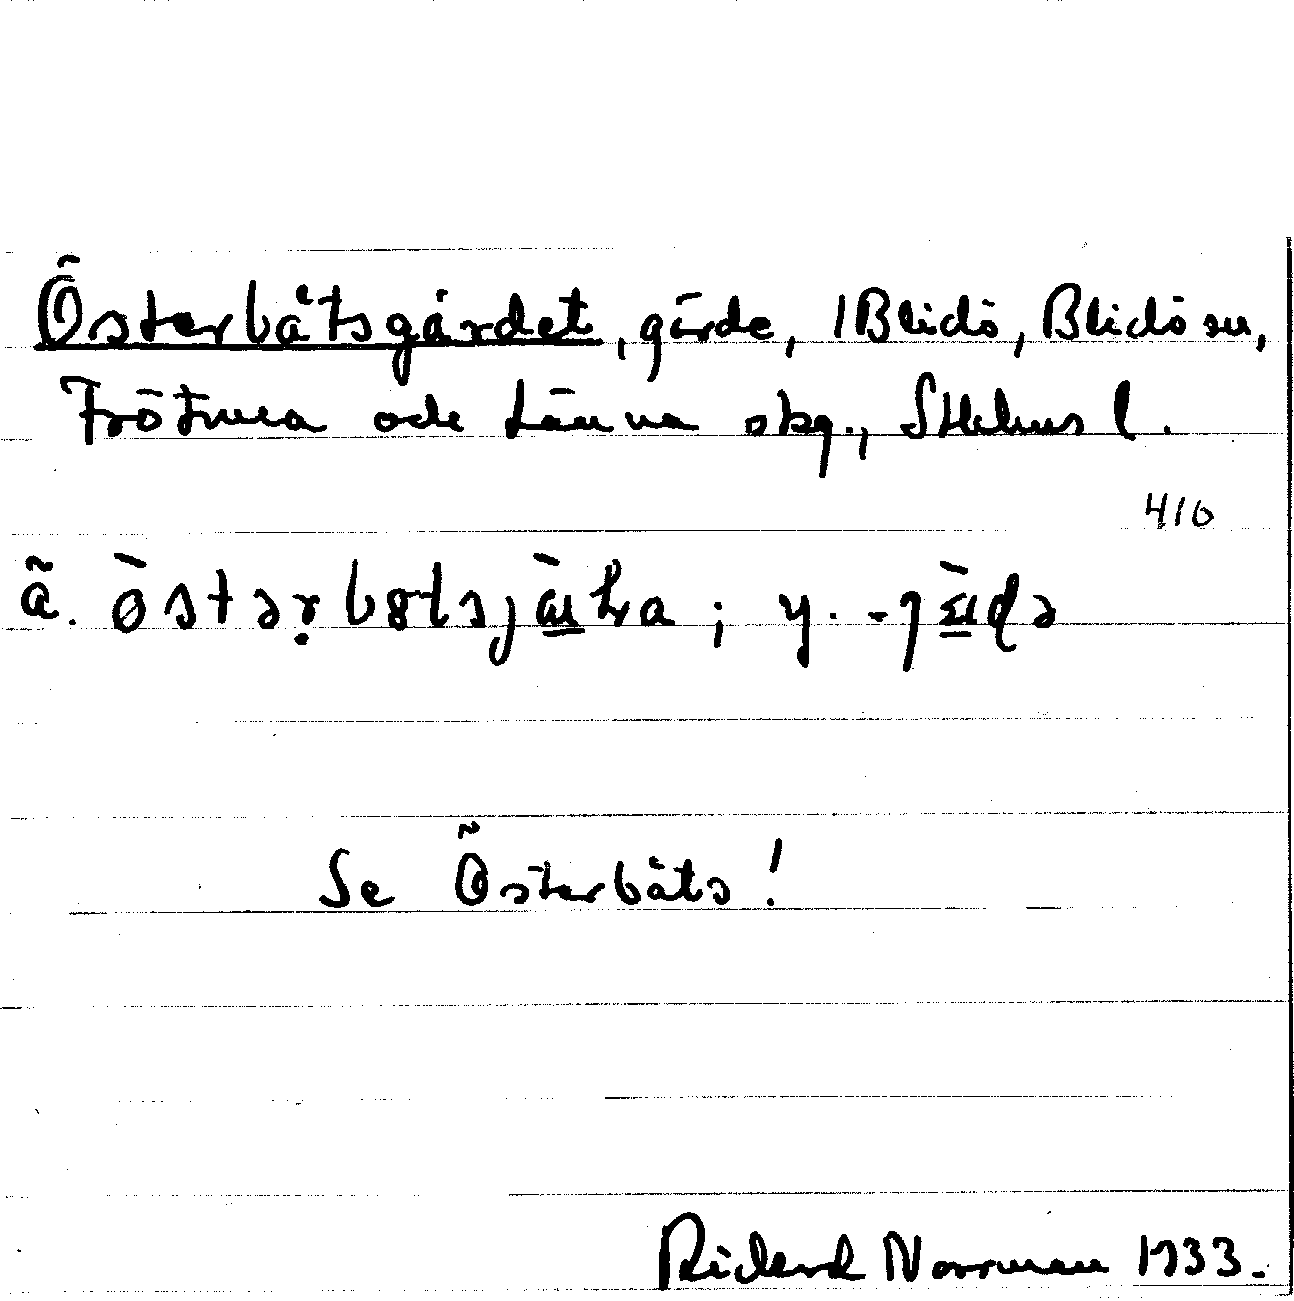 Österbåtsgärdet, gärde, 1 Blidö, Blidö sn,
Frötuna och Länna skg., Sthlms l.
410
ä.
; y.
Se Österbåts!
Rickard Norrman 1933.